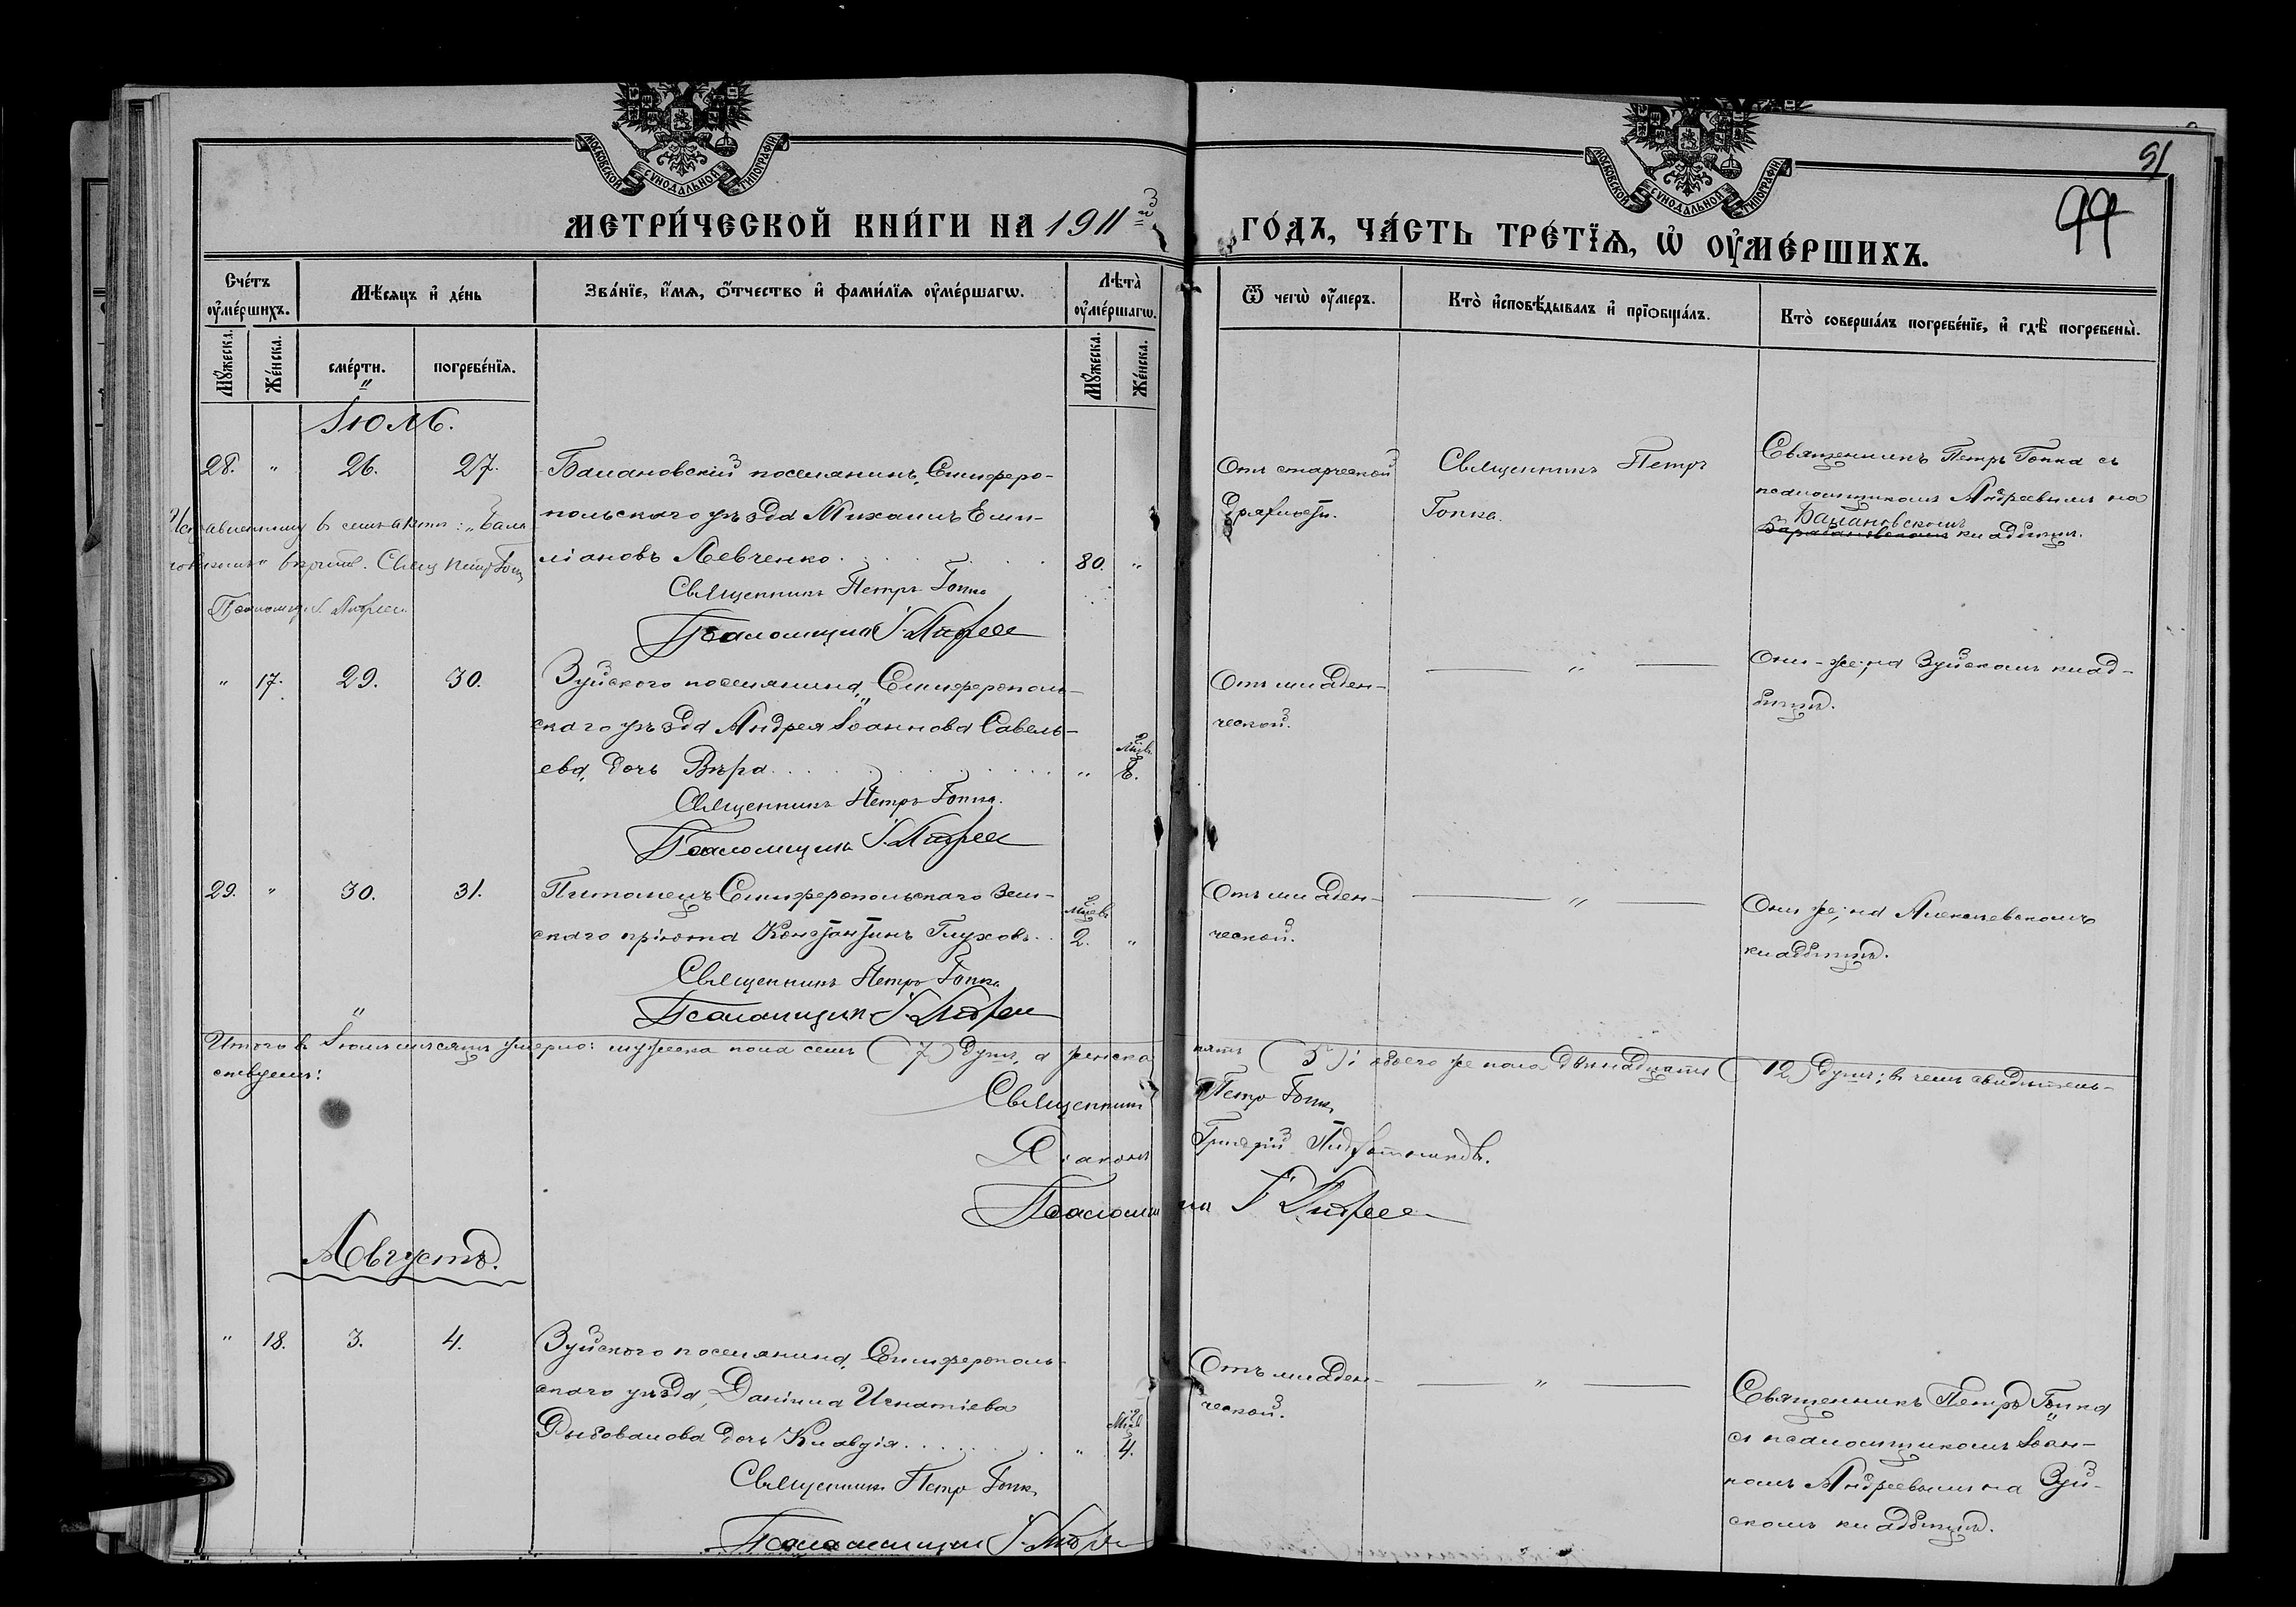 МОСКОВСКОЙ СУНОДАЛЬНОЙ ТИПОГРАФІИ
МОСКОВСКОЙ СУНОДАЛЬНОЙ ТИПОГРАФІИ
91
99
МЕТРИ́ЧЕСКОЙ КНИ́ГИ НА 1911й
ГО́ДЪ, ЧА́СТЬ ТРЕ́ТЇѦ, Ѡ҆ ОУ҆МЕ́РШИХЪ.
Сче́тъ оу҆ме́ршихъ.
Мѣ́сяцъ и҆ де́нь
Зва́нїе, и҆́мѧ, ѻ҆́тчество и҆ фами́лїѧ оу҆ме́ршагѡ.
Лѣта̀ оу҆ме́ршагѡ.
Ѿ чегѡ̀ оу҆́меръ.
Кто̀ и҆сповѣ́дывалъ и҆ прїѻбща́лъ.
Кто̀ соверша́лъ погребе́нїе, и҆ гдѣ̀ погребены̀.
Мꙋ́жеска.
Же́нска.
сме́рти.
погребе́нїѧ.
Мꙋ́жеска.
Же́нска.
Іюль.
28. " 26. 27.
Балановскій поселянинъ, Симферо-
польскаго уѣзда Михаилъ Еми-
ліановъ Левченко
80. "
Священникъ Петръ Гопка
Псаломщикъ І. Андрее
Отъ старческой
дряхлости.
Священникъ Петръ
Гопка.
Священникъ Петръ Гопка съ
псаломщикомъ Андреевымъ на
Балановскомъ
кладбищѣ.
" 17. 29. 30.
Зуйскаго поселянина, Симферополь-
скаго уѣзда Андрея Іоаннова Савель-
ева, дочь Вѣра
" 8.
Священникъ Петръ Гопка.
Псаломщикъ І. Андрее
Отъ младен-
ческой.
"
Они-же, на Зуйскомъ клад-
бищѣ.
29. " 30. 31.
Питомецъ Симферопольскаго зем-
скаго пріюта Константинъ Глуховъ
2. "
Священникъ Петръ Гопка
Псаломщикъ І. Андрее
Отъ младен-
ческой.
"
Они же, на Алексѣевскомъ
кладбищѣ.
Итого въ Іюлѣ мѣсяцѣ умерло: мужеска пола семь (7) душъ, а женска пять (5); обоего же пола двѣнадцать (12) душъ; въ чемъ свидѣтель-
ствуемъ:
Священникъ Петръ Гопка
Діаконъ Григорій
Псаломщикъ І. Андрее
Августъ.
" 18. 3. 4.
Зуйскаго поселянина, Симферополь-
скаго уѣзда, Даніила Игнатіева
Рыбовалова дочь Клавдія
" 4.
Священникъ Петръ Гопка
Псаломщикъ І. Андре
Отъ младен-
ческой.
"
Священникъ Петръ Гопка
съ псаломщикомъ Іоан-
номъ Андреевымъ на Зуй-
скомъ кладбищѣ.